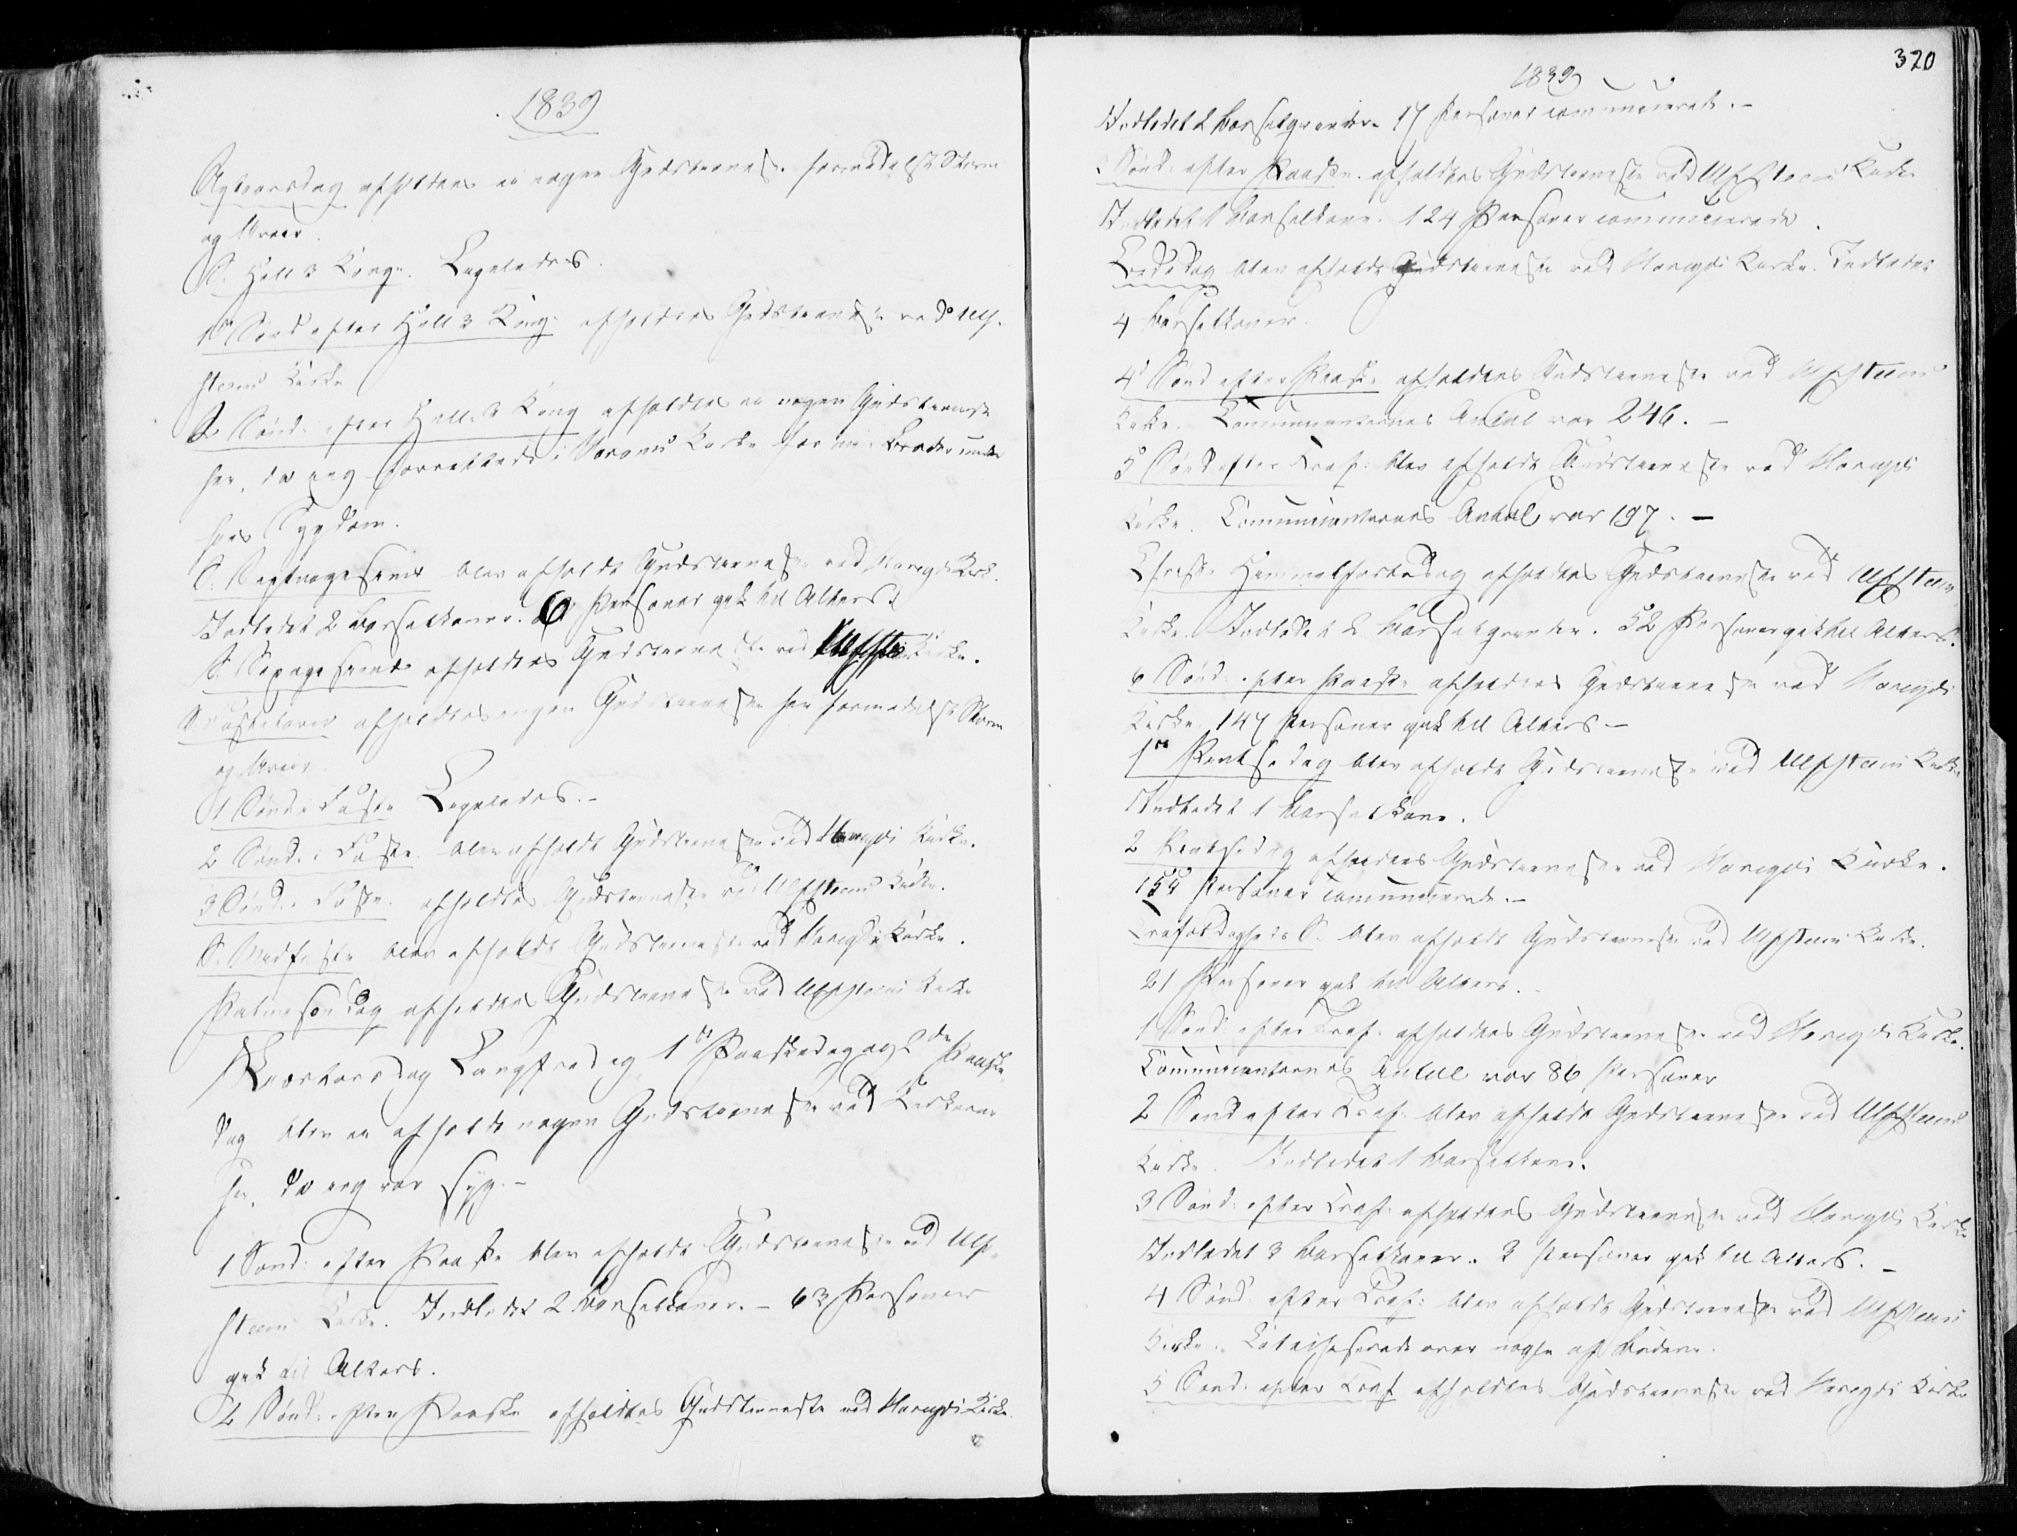 1839
Nytaarsdag afholdtes ei nogen Gudstieneste formedelst Storm
og Uveir.
S. Hell 3 Kong. Ligeledes.
1ste Sønd efter Hell 3 Kong. afholdtes Gudstieneste ved Ulf-
steens Kirke
2 Sønd: efter Hell. 3 Kong afholdtes ei nogen Gudstieneste
her, da jeg forrettede i Kirke for min Broder under
hans Sygdom.
S. Septuagesima blev afholdt Gudstieneste ved Herøydi Kirk.
Indledet 2 Barselkoner. 6 Personer gik til Alters.
S. Sexagesima afholdtes Gudstieneste ved Kirke.
S. Fastelavn afholdtes ingen Gudstieneste her formedelst Storm
og Uveir.
1 Sønd i Faste Ligeledes. -
2 Sønd. i Faste blev afholdt Gudstieneste ved Herøydi Kirke.
3 Sønd. i Faste. afholdtes Gudstieneste ved Ulfsteens Kirke.
S. Midfaste blev afholdt Gudstieneste ved Herøydi Kirke.
Palmesøndag afholdtes Gudstieneste ved Ulfsteens Kirke
Skiærtorsdag Langfredag 1ste Paaskedag og 2den Paaske-
dag blev ei afholdt nogen Gudstieneste ved Kirkerne
her, da jeg var syg. -
1 Sønd: efter Paaske blev afholdt Gudstieneste ved Ulf-
steens Kirke. Indledet 2 Barselkoner. - 63 Personer
gik til Alters.
2 Sønd: efter Paaske afholdtes Gudstieneste ved Herøydi Kirke.
320
1839
Indledet 2 Barselqvinder. 17 Personer communicerede. -
3 Sønd: efter Paaske. afholdtes Gudstieneste ved Ulfsteens Kirke
Indledet 1 Barselkone. 124 Personer communicerede.
Bededag blev afholdt Gudstieneste ved Herøydi Kirke. Indledet
4 Barselkoner.
4 Sønd efter Paaske afholdtes Gudstieneste ved Ulfsteens
Kirke. Communicanternes Antal var 246. -
5 Sønd efter blev afholdt Gudstieneste ved Herøydi
Kirke. Communicanternes Antal var 197. -
Christi Himmelfartsdag afholdtes Gudstieneste ved Ulfsteens
Kirke. Indledet 2 Barselqvinder. 52 Personer gik til Alters.
6 Sønd: efter Paaske afholdtes Gudstieneste ved Herøydi
Kirke 147 Personer gik til Alters -
1ste Pintsedag blev afholdt Gudstieneste ved Ulfsteens Kirke
Indledet 1 Barselkone.
2 Pintsedag afholdtes Gudstieneste ved Herøydi Kirke.
154 Personer communicerede. -
Trefoldigheds S. blev afholdt Gudstieneste ved Ulfsteens Kirke.
21 Personer gik til Alters.
1 Sønd: efter Tref: afholdtes Gudstieneste ved Herøydi Kirke.
Communicanternes Antal var 86 Personer
2 Sønd efter Tref. blev afholdt Gudstieneste ved Ulfsteens
Kirke. Indledet 1 Barselkone.
3 Sønd: efter Tref: afholdtes Gudstieneste ved Herøydi Kirke
Indledet 3 Barselkoner. 3 Personer gik til Alters. -
4 Sønd: efter Tref: blev afholdt Gudstieneste ved Ulfsteens
Kirke. Catechiserede over nogle af Budene.
5 Sønd: efter Tref afholdtes Gudstieneste ved Herøydi Kirke